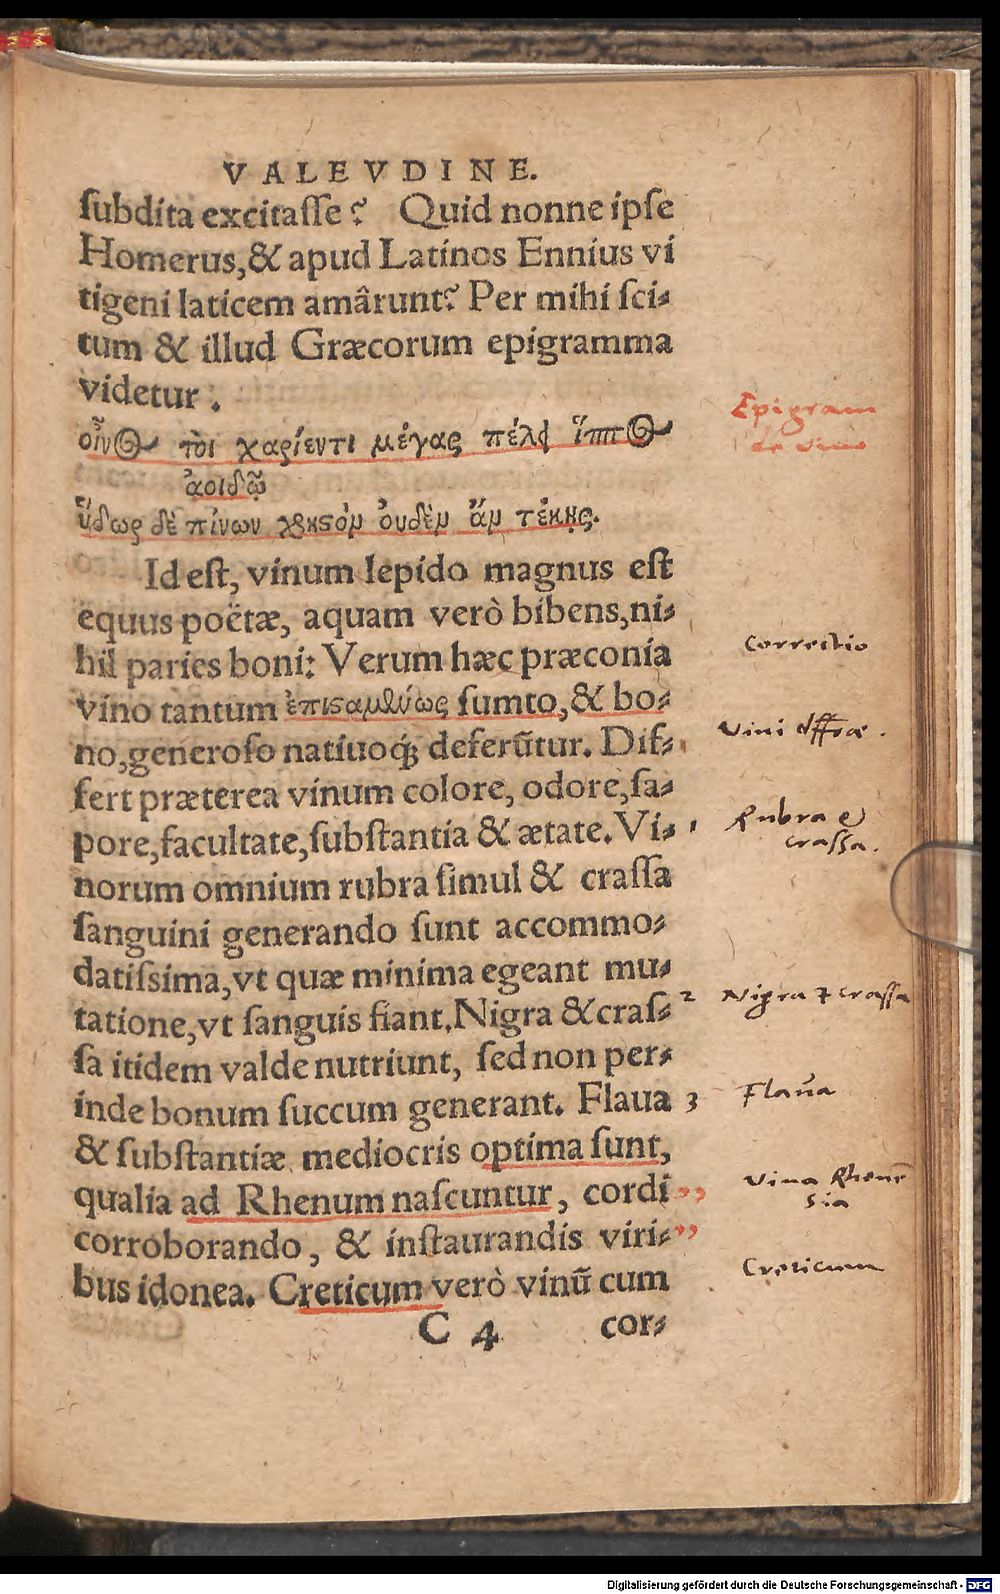 VALEVDINE.
subdita excitasse? Quid nonne ipse
Homerus, & apud Latinos Ennius vi
tigeni laticem amârunt? Per mihi sci-
tum & illud Græcorum epigramma
videtur.
Epigram
de vino
οἶνος τοι χαρίεντι μέγας πέλει ἵππος
ἀοιδῷ
ὕδωρ δὲ πίνων χρηστὸμ ουδὲμ ἄμ τέκῃς.
Id est, vinum lepido magnus est
equus poëtæ, aquam verò bibens, ni-
hil paries boni: Verum hæc præconia
Correctio
vino tantum ἐπισαμένως sumto, & bo-
no, generoso natiuoq; deferũtur. Dif-
Vini dffræ.
fert præterea vinum colore, odore, sa-
pore, facultate, substantia & ætate. Vi- 1
Rubra et
crassa.
norum omnium rubra simul & crassa
sanguini generando sunt accommo-
datissima, vt quæ minima egeant mu-
tatione, vt sanguis fiant. Nigra & cras- 2
Nigra & crassa
sa itidem valde nutriunt, sed non per-
inde bonum succum generant. Flaua 3
Flaua
& substantiæ mediocris optima sunt,
qualia ad Rhenum nascuntur, cordi ”
Vina Rhenen
sia
corroborando, & instaurandis viri- ”
bus idonea. Creticum verò vinũ cum
Creticum
C 4 cor-
Digitalisierung gefördert durch die Deutsche Forschungsgemeinschaft - DFG